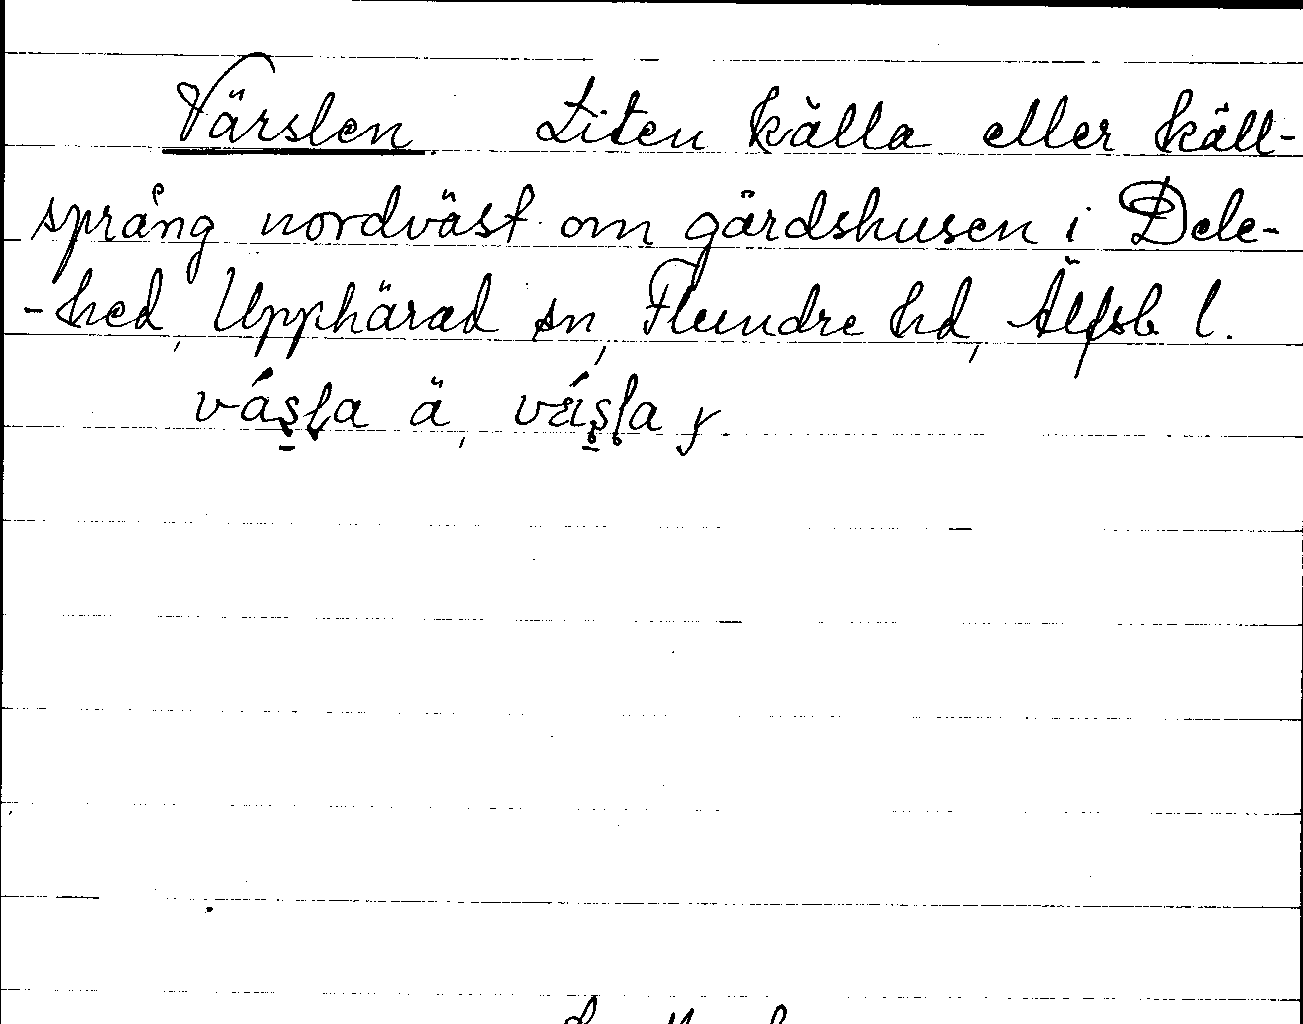 Värslen. Liten källa eller käll-
språng nordväst om gårdshusen i Dele-
-hed, Upphärad sn, Flundre hd, Älfsb l.
vásla ä, vásla y.